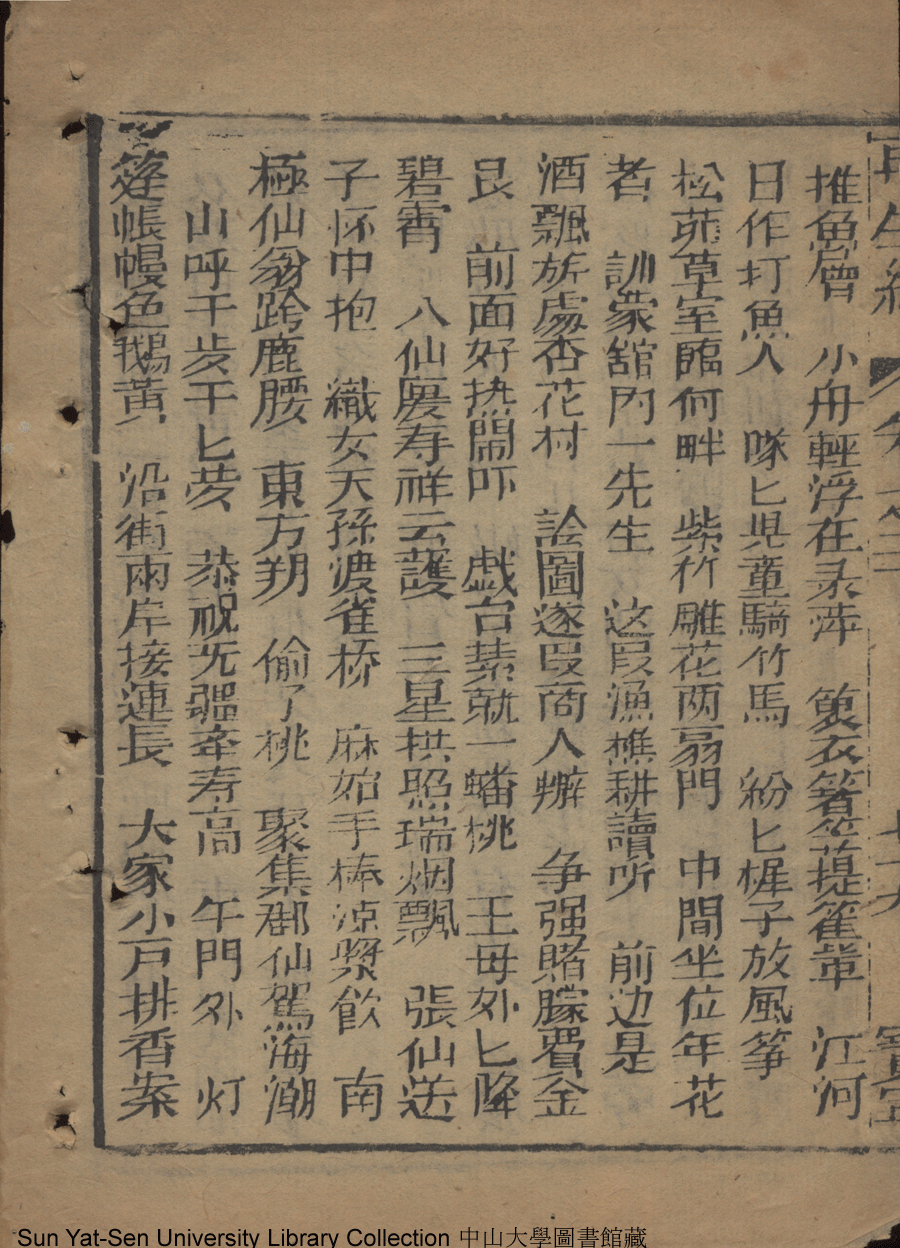 推魚層　小舟輕浮在录萍　簑衣箬笠提篧單　江河
日作打魚人　隊匕児童騎竹馬　紛匕樨子放風筝
松茆草室臨何畔　紫竹雕花两扇門　中間坐位年花
者　訓蒙舘内一先生　这叚漁樵耕讀所　前边是
酒飄旂處杏花村　訟圖逐叚商人辦　争强賭賺費金
艮　前面好热閙吓　戯台紥就一蟠桃　王母外匕降
碧霄　八仙慶寿祥云護　三星拱照瑞烟飄　張仙送
子怀中抱　織女天孫渡雀桥　麻姑手棒凉漿飲　南
極仙翁跨鹿腰　東方朔　偷了桃　聚集郡仙駕海潮
山呼千歩千匕叟　恭祝无疆牽寿高　午門外　灯
篷帳幔色鵝黃　沿街兩岸接連長　大家小戸排香案
Sun Yat-Sen University Library Collection 中山大學圖書館藏